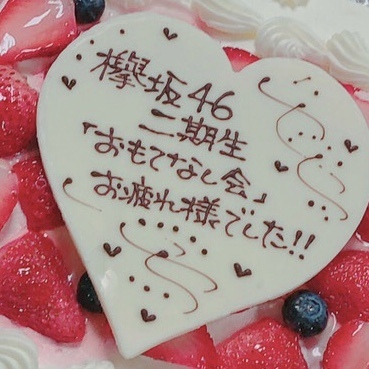 欅坂46
二期生
「おもてなし会」
お疲れ様でした!!